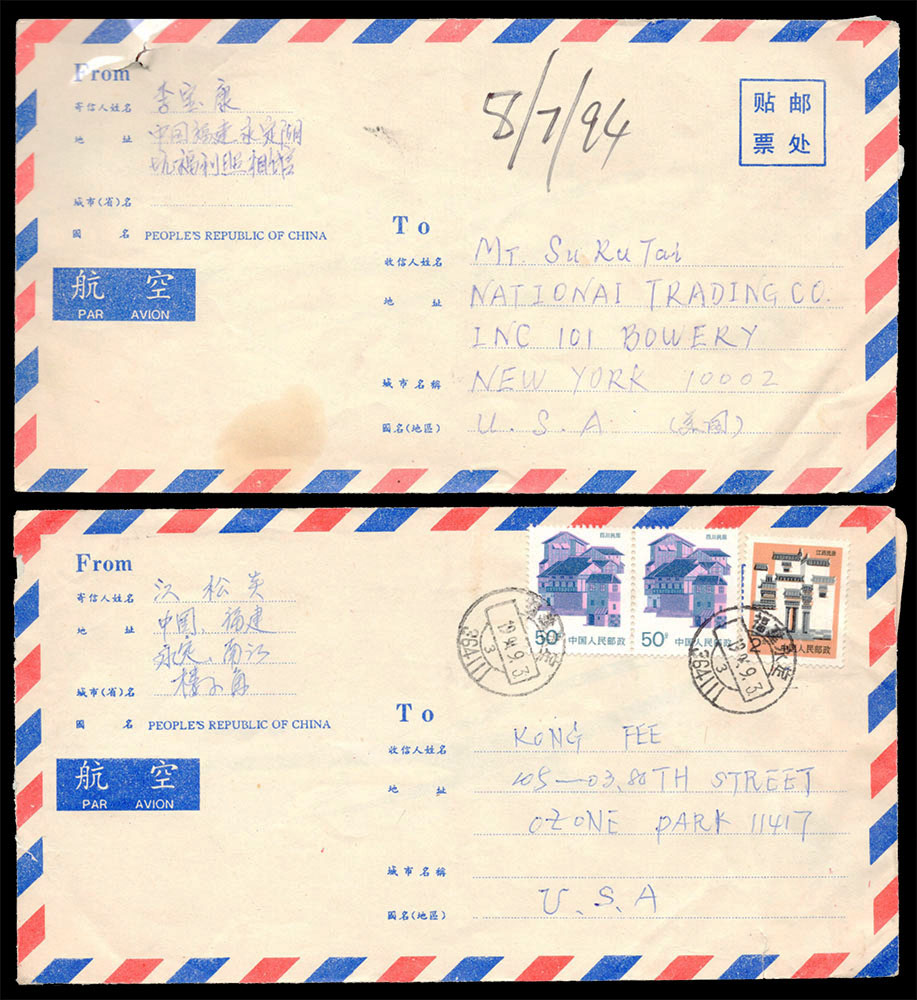 From
寄信人姓名 李宝康
8/7/94
贴邮
票处
地 址 中国福建永定湖
坑福利照相馆
城市(省)名
國 名 PEOPLE'S REPUBLIC OF CHINA
航 空
PAR AVION
To
收信人姓名 MT. SU RU Tai
地 址 NATIONAI TRADING CO.
INC 101 BOWERY
城市名稱 NEW YORK 10002
國名(地區) U. S. A. (美国)
From
寄信人姓名 江松英
地 址 中国,福建
永定、南江
城市(省)名
國 名 PEOPLE'S REPUBLIC OF CHINA
航 空
PAR AVION
四川民居
50分 中国人民邮政
四川民居
50分 中国人民邮政
江西民居
中国人民邮政
福建永定
1994.9.3
364111
福建永定
1994.9.3
364111
To
收信人姓名 KONG FEE
地 址 105—03, 88TH STREET
OZONE PARK 11417
城市名稱
國名(地區) U. S. A